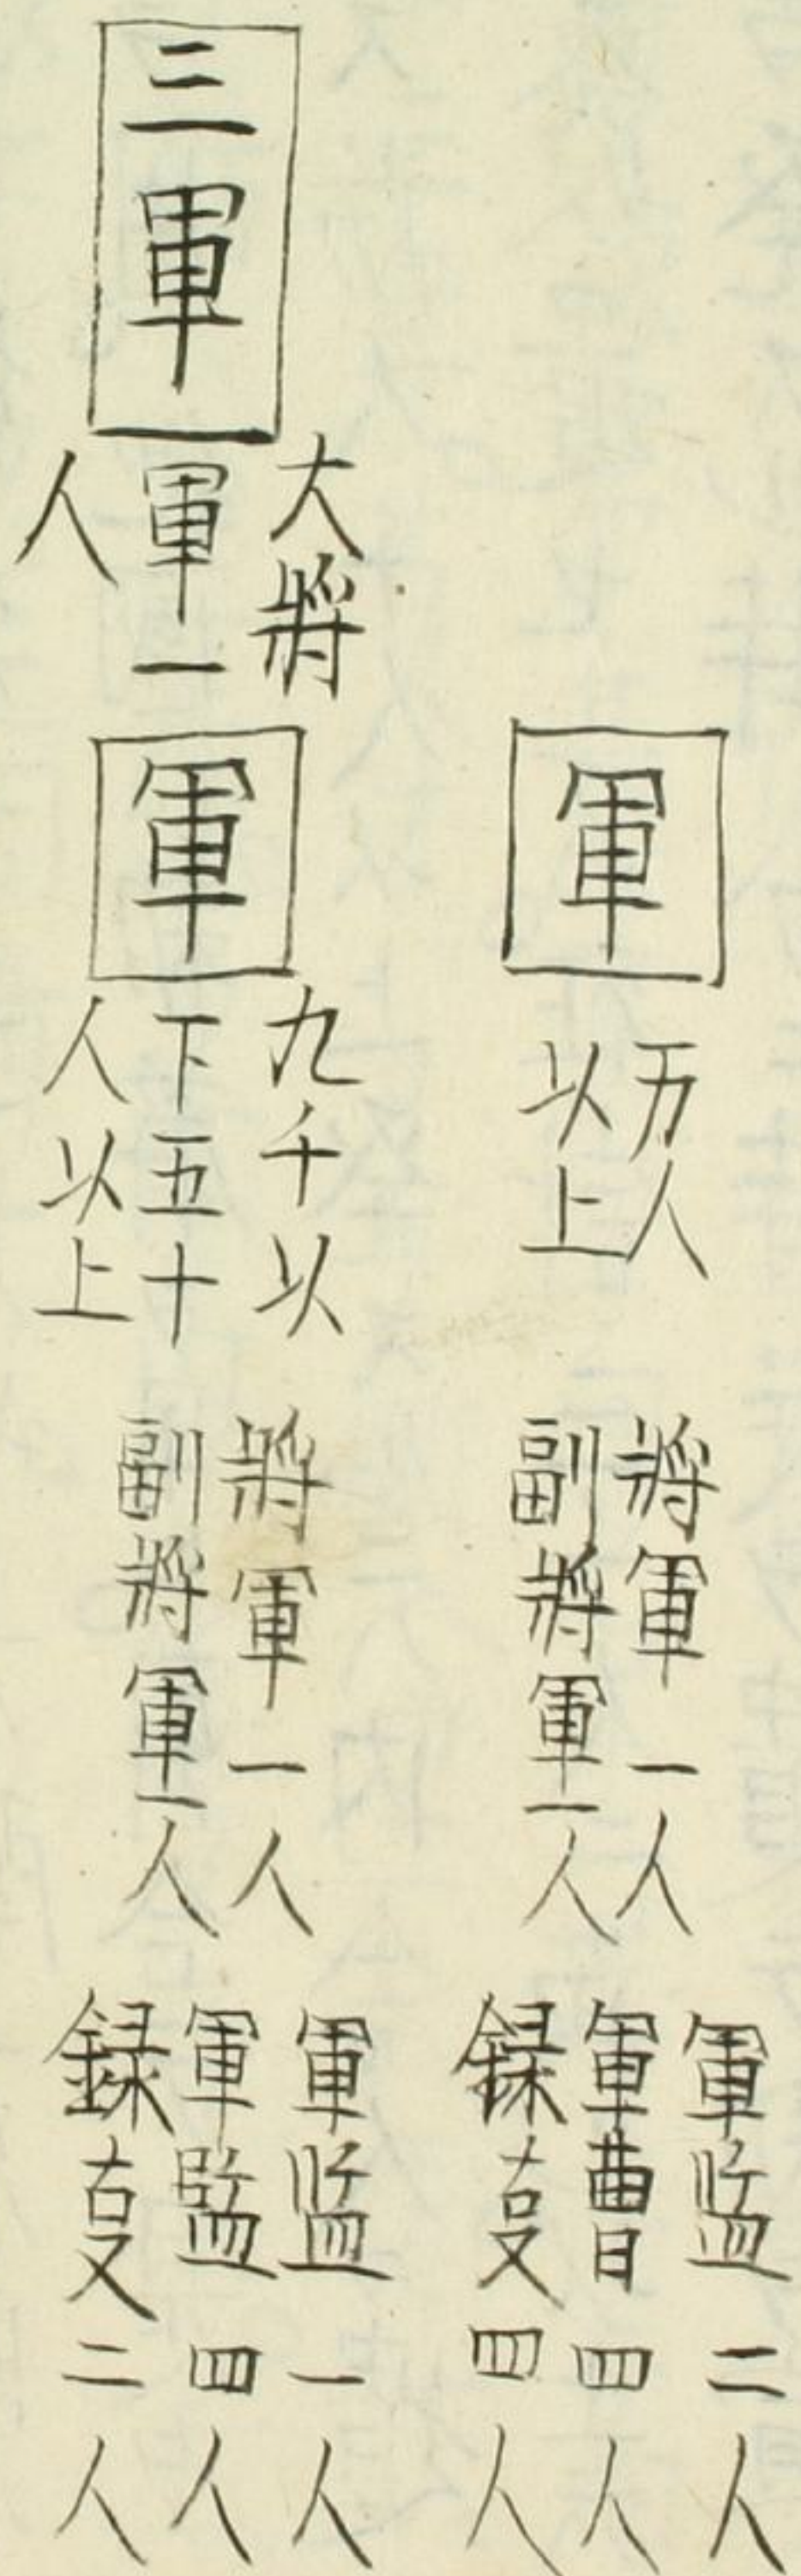 軍
万人
以上
將軍一人
副將軍一人
軍監二人
軍曹四人
録㕝四人
三軍
大將
軍一
人
軍
九千以
下五十
人以上
將軍一人
副將軍一人
軍監一人
軍監四人
録㕝二人